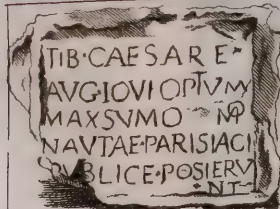 TIB·CAESARE·
AVG·IOVI OPTVM
MAXSVMO M
NAVTAE·PARISIACI
PVBLICE·POSIERV
·NT·